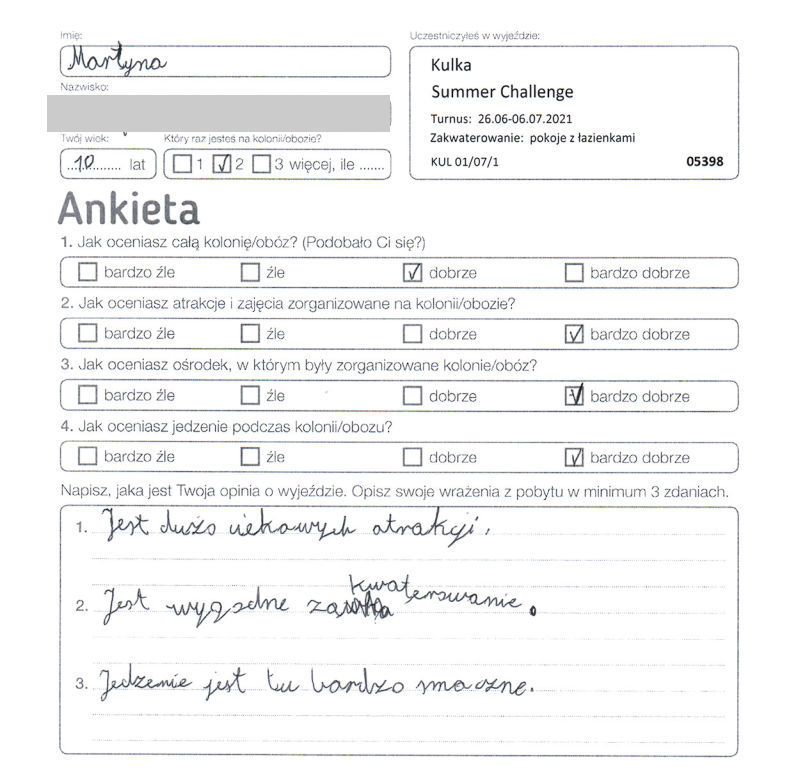 Imię:
Martyna
Nazwisko:
Twój wiek:
10 lat
Który raz jesteś na kolonii/obozie?
1 2 3 więcej, ile .......
Uczestniczyłeś w wyjeździe:
Kulka
Summer Challenge
Turnus: 26.06-06.07.2021
Zakwaterowanie: pokoje z łazienkami
KUL 01/07/1 05398
Ankieta
1. Jak oceniasz całą kolonię/obóz? (Podobało Ci się?)
bardzo źle źle dobrze bardzo dobrze
2. Jak oceniasz atrakcje i zajęcia zorganizowane na kolonii/obozie?
bardzo źle źle dobrze bardzo dobrze
3. Jak oceniasz ośrodek, w którym były zorganizowane kolonie/obóz?
bardzo źle źle dobrze bardzo dobrze
4. Jak oceniasz jedzenie podczas kolonii/obozu?
bardzo źle źle dobrze bardzo dobrze
Napisz, jaka jest Twoja opinia o wyjeździe. Opisz swoje wrażenia z pobytu w minimum 3 zdaniach.
1. Jest dużo ciekawych atrakcji.
2. Jest wygodne zakwaterowanie.
3. Jedzenie jest tu bardzo smaczne.